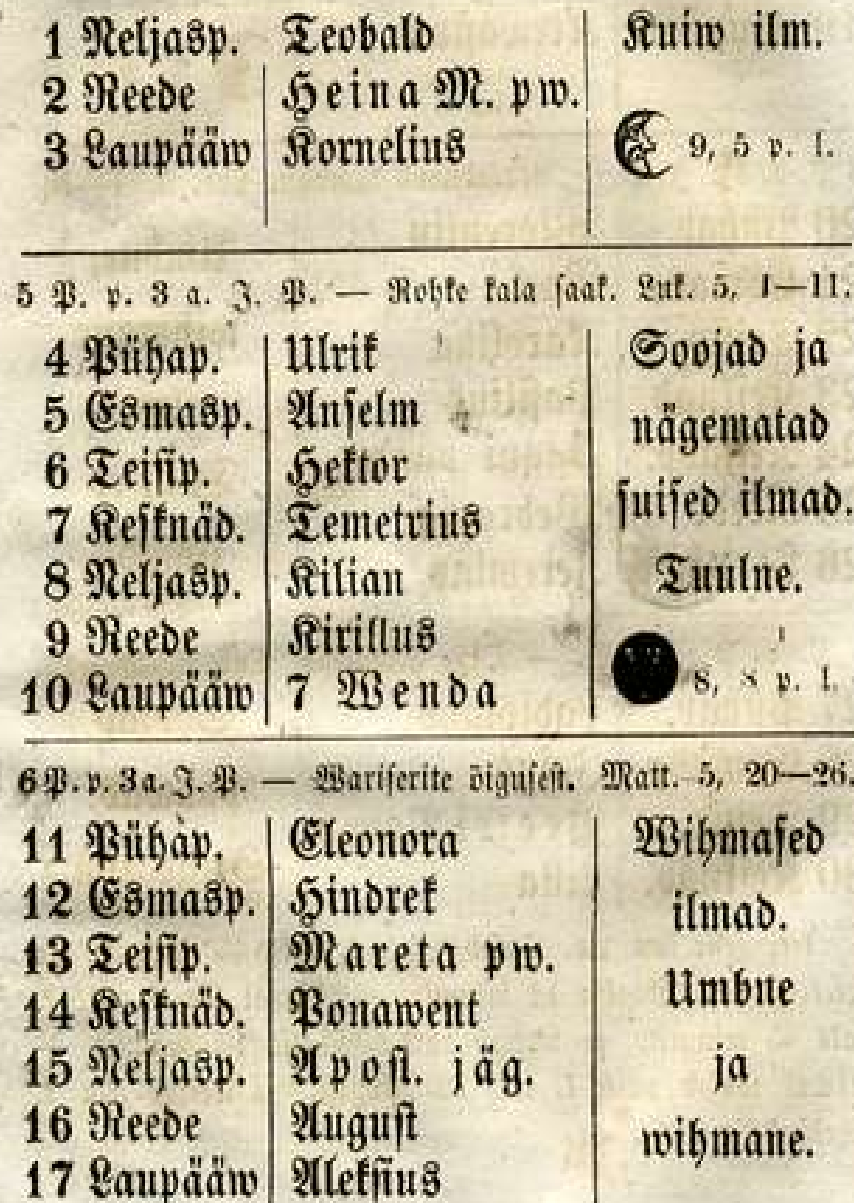 1 Neljasp. Teobald Kuiw ilm.
2 Reede Heina M. pw.
3 Laupääw Kornelius 9, 5 p. l.
5 P. p. 3 a. J. P. — Rohke kala saak. Luk. 5, 1—11.
4 Pühap. Ulrik Soojad ja
5 Esmasp. Anselm nägematad
6 Teisip. Hektor
7 Kesknäd. Temetrius suised ilmad.
8 Neljasp. Kilian Tuulne.
9 Reede Kirillus
10 Laupääw 7 Wenda 8, 8 p. l.
6 P. p. 3 a. J. P. — Wariserite õigusest. Matt. 5, 20—26.
11 Pühap. Eleonora Wihmased
12 Esmasp. Hindrek ilmad.
13 Teisip. Mareta pw.
14 Kesknäd. Ponawent Umbne
15 Neljasp. Apost. jäg. ja
16 Reede August wihmane.
17 Laupääw Aleksius